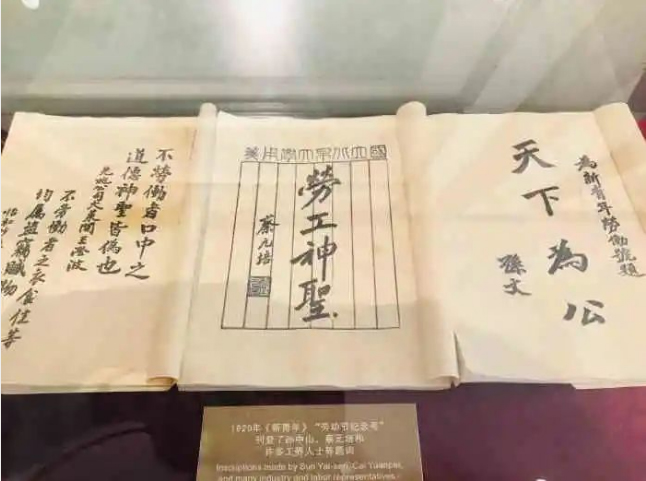 為新青年勞働號題
天下為公
孫文
國立北京大學用箋
勞工神聖
蔡元培
不勞働者口中之
道德神聖皆偽也
不勞働者之衣食住等
均属盜竊贓物
1920年《新青年》“劳动节纪念号”
刊登了孙中山、蔡元培和
许多工界人士等题词
Inscriptions made by Sun Yat-sen, Cai Yuanpei,
and many industry and labor representatives